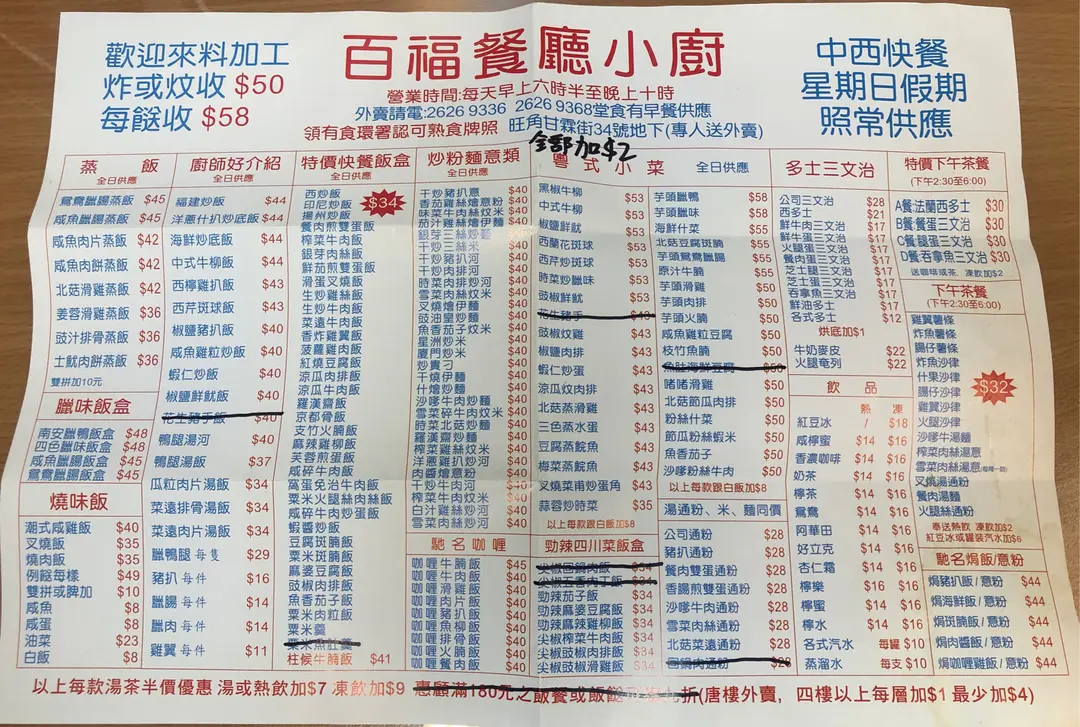 歡迎來料加工
炸或炆收 $50
每餸收 $58
百福餐廳小廚
營業時間:每天早上六時半至晚上十時
外賣請電:2626 9336 2626 9368堂食有早餐供應
領有食環署認可熟食牌照 旺角甘霖街34號地下(專人送外賣)
中西快餐
星期日假期
照常供應
全部加$2
蒸飯
全日供應
鴛鴦臘腸蒸飯 $45
咸魚臘腸蒸飯 $45
咸魚肉片蒸飯 $42
咸魚肉餅蒸飯 $42
北菇滑雞蒸飯 $42
姜蓉滑雞蒸飯 $36
豉汁排骨蒸飯 $36
土魷肉餅蒸飯 $36
雙拼加10元
臘味飯盒
南安臘鴨飯盒 $48
四色臘味飯盒 $48
咸魚臘腸飯盒 $45
鴛鴦臘腸飯盒 $45
燒味飯
潮式咸雞飯 $40
叉燒飯 $35
燒肉飯 $35
例餸每樣 $49
雙拼或脾加 $10
咸魚 $8
咸蛋 $8
油菜 $23
白飯 $8
廚師好介紹
全日供應
福建炒飯 $44
洋蔥什扒炒底飯 $44
海鮮炒底飯 $44
中式牛柳飯 $44
西檸雞扒飯 $43
西芹斑球飯 $43
椒鹽豬扒飯 $40
咸魚雞粒炒飯 $40
蝦仁炒飯 $40
椒鹽鮮魷飯 $40
花生豬手飯 $40
鴨腿湯河 $40
鴨腿湯飯 $37
瓜粒肉片湯飯 $34
菜遠排骨湯飯 $34
菜遠肉片湯飯 $34
臘鴨腿 每隻 $29
豬扒 每件 $16
臘腸 每件 $14
臘肉 每件 $14
雞翼 每件 $11
特價快餐飯盒
全日供應
$34
西炒飯
印尼炒飯
揚州炒飯
餐肉雙蛋飯
榨菜牛肉飯
銀芽肉絲飯
鮮茄煎雙蛋飯
滑蛋叉燒飯
生炒雞絲飯
生炒牛肉飯
菜遠牛肉飯
香炸雞翼飯
菠蘿雞肉飯
紅燒豆腐飯
涼瓜肉排飯
涼瓜牛肉飯
羅漢齋飯
京都骨飯
支竹火腩飯
麻辣雞柳飯
芙蓉煎蛋飯
咸碎牛肉飯
窩蛋免治牛肉飯
粟米火腿絲肉絲飯
咸碎牛肉炒蛋飯
蝦醬炒飯
豆腐斑腩飯
粟米斑腩飯
麻婆豆腐飯
豉椒肉排飯
魚香茄子飯
粟米肉粒飯
粟米羹
粟米魚肚羹
柱候牛腩飯 $41
炒粉麵意類
全日供應
干炒豬扒意 $40
番茄雞絲燴意粉 $40
味菜牛肉絲炆米 $40
茄汁雞絲燴伊麵 $40
銀芽三絲炒麵 $40
干炒三絲米 $40
干炒豬扒河 $40
干炒肉排河 $40
時菜肉片炒河 $40
雪菜肉絲炆米 $40
叉燒燴伊麵 $40
豉油皇炒麵 $40
魚香茄子炆米 $40
星洲炒米 $40
廈門炒米 $40
炒貴刁 $40
干燒伊麵 $40
什燴炒麵 $40
沙嗲牛肉炒麵 $40
雪菜碎牛肉炆米 $40
時菜北菇炒麵 $40
羅漢齋炒麵 $40
榨菜雞絲炆米 $40
洋蔥雞扒炒河 $40
肉醬燴意粉 $40
干炒牛肉河 $40
榨菜牛肉炆米 $40
白汁雞絲炒河 $40
雪菜肉絲炒河 $40
馳名咖喱
咖喱牛腩飯 $45
咖喱牛肉飯 $40
咖喱滑雞飯 $40
咖喱肉片飯 $40
咖喱豬扒飯 $40
咖喱魚柳飯 $40
咖喱排骨飯 $40
咖喱火腩飯 $40
咖喱餐肉飯 $40
粵式小菜 全日供應
黑椒牛柳 $53
中式牛柳 $53
椒鹽鮮魷 $53
西蘭花斑球 $53
西芹炒斑球 $53
時菜炒臘味 $53
豉椒鮮魷 $53
花生豬手 $43
豉椒炆雞 $43
椒鹽肉排 $43
蝦仁炒蛋 $43
涼瓜炆肉排 $43
北菇蒸滑雞 $43
三色蒸水蛋 $43
豆腐蒸鯇魚 $43
梅菜蒸鯇魚 $43
叉燒菜甫炒蛋角 $43
蒜蓉炒時菜 $35
以上每款跟白飯加$8
勁辣四川菜飯盒
尖椒回鍋肉飯 $34
尖椒五香肉丁飯 $34
勁辣茄子飯 $34
勁辣麻婆豆腐飯 $34
勁辣麻辣雞柳飯 $34
尖椒榨菜牛肉飯 $34
尖椒豉椒肉排飯 $34
尖椒豉椒滑雞飯 $34
芋頭臘鴨 $58
芋頭臘味 $58
海鮮什菜 $55
北菇豆腐斑腩 $55
芋頭鴛鴦臘腸 $55
原汁牛腩 $55
芋頭滑雞 $50
芋頭肉排 $50
芋頭火腩 $50
咸魚雞粒豆腐 $50
枝竹魚腩 $50
魚肚海鮮豆腐 $50
啫啫滑雞 $50
北菇節瓜肉排 $50
粉絲什菜 $50
節瓜粉絲蝦米 $50
魚香茄子 $50
沙嗲粉絲牛肉 $50
以上每款跟白飯加$8
湯通粉、米、麵同價
公司通粉 $28
豬扒通粉 $28
餐肉雙蛋通粉 $28
香腸煎雙蛋通粉 $28
沙嗲牛肉通粉 $28
雪菜肉絲通粉 $28
北菇菜遠通粉 $28
回鍋肉通粉 $28
多士三文治
公司三文治 $28
西多士 $21
鮮牛肉三文治 $17
鮮牛蛋三文治 $17
火腿蛋三文治 $17
餐肉蛋三文治 $17
芝士腿三文治 $17
芝士蛋三文治 $17
吞拿魚三文治 $17
鮮油多士 $17
各式多士 $12
烘底加$1
牛奶麥皮 $22
火腿奄列 $22
飲品
熱 凍
紅豆冰 / $18
咸檸蜜 $14 $16
香濃咖啡 $14 $16
奶茶 $14 $16
檸茶 $14 $16
鴛鴦 $14 $16
阿華田 $14 $16
好立克 $14 $16
杏仁霜 $14 $16
檸樂 $16 $16
檸蜜 $14 $16
檸水 $14 $16
各式汽水 每罐 $10
蒸溜水 每支 $10
特價下午茶餐
(下午2:30至6:00)
A餐法蘭西多士 $30
B餐餐蛋三文治 $30
C餐腿蛋三文治 $30
D餐吞拿魚三文治 $30
送咖啡或茶, 凍飲加$2
下午茶餐
(下午2:30至6:00)
$32
雞翼薯條
炸魚薯條
腸仔薯條
炸魚沙律
什果沙律
腸仔沙律
雞翼沙律
火腿沙律
沙嗲牛湯麵
榨菜肉絲湯意
雪菜肉絲湯意
叉燒湯通粉
餐肉湯麵
火腿絲通粉
奉送熱飲 凍飲加$2
紅豆冰或罐裝汽水加$6
馳名焗飯/意粉
焗豬扒飯/意粉 $44
焗海鮮飯/意粉 $44
焗斑腩飯/意粉 $44
焗肉醬飯/意粉 $44
焗咖喱雞飯/意粉 $44
以上每款湯茶半價優惠 湯或熱飲加$7 凍飲加$9 惠顧滿180元之飯餐或飯 九折(唐樓外賣, 四樓以上每層加$1 最少加$4)